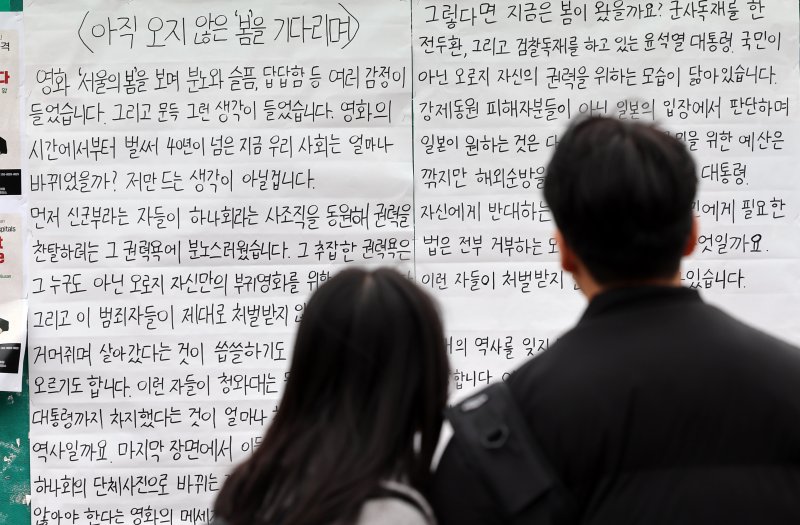 <아직 오지 않은 '봄'을 기다리며>
영화 '서울의 봄'을 보며 분노와 슬픔, 답답함 등 여러 감정이
들었습니다. 그리고 문득 그런 생각이 들었습니다. 영화의
시간에서부터 벌써 40년이 넘은 지금 우리 사회는 얼마나
바뀌었을까? 저만 드는 생각이 아닐겁니다.
먼저 신군부라는 자들이 하나회라는 사조직을 동원해 권력을
찬탈하려는 그 권력욕에 분노스러웠습니다. 그 추잡한 권력욕은
그 누구도 아닌 오로지 자신만의 부귀영화를 위한
그리고 이 범죄자들이 제대로 처벌받지
거머쥐며 살아갔다는 것이 씁쓸하기도
오르기도 합니다. 이런 자들이 청와대는
대통령까지 차지했다는 것이 얼마나
역사일까요. 마지막 장면에서
하나회의 단체사진으로 바뀌는
않아야 한다는 영화의
그렇다면 지금은 봄이 왔을까요? 군사독재를 한
전두환, 그리고 검찰독재를 하고 있는 윤석열 대통령. 국민이
아닌 오로지 자신의 권력을 위하는 모습이 닮아있습니다.
강제동원 피해자분들이 아닌 일본의 입장에서 판단하며
일본이 원하는 것은 위한 예산은
깎지만 해외순방을 대통령.
자신에게 반대하는 에게 필요한
법은 전부 거부하는
이런 자들이 처벌받지 있습니다.
역사를 잊지